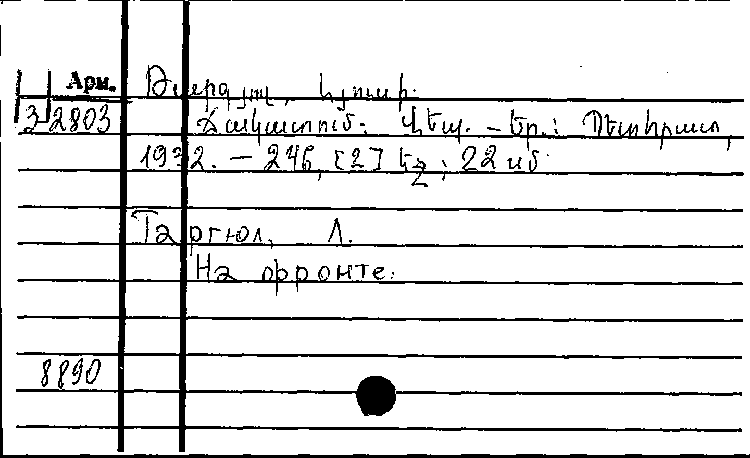 Арм. Թարգյուլ, Լյումր.
3 2803 Ճակատում: Վեպ. – Եր.: Պետհրատ,
1932. – 246, [2] էջ; 22 սմ.
Таргюл, Л.
На фронте.
8890